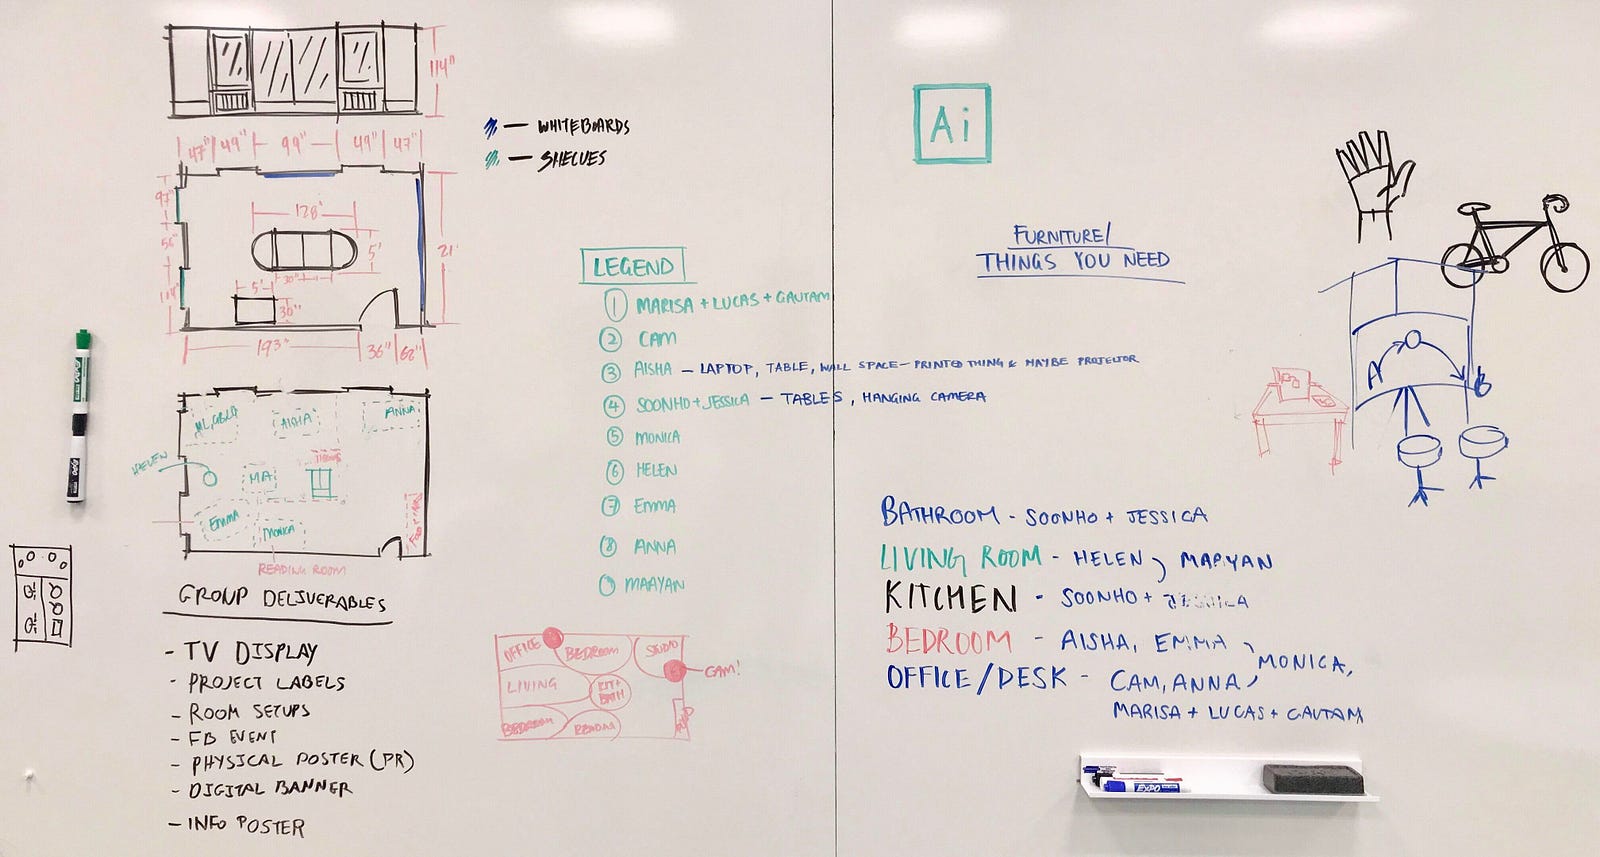 114"
47" 49" 99" 49" 47"
97"
128"
56"
5'
21'
30"
5'
30"
104"
193" 36" 62"
— WHITEBOARDS
— SHELVES
AISHA
ANNA
HELEN
MA
EMMA
MONICA
READING ROOM
GROUP DELIVERABLES
- TV DISPLAY
- PROJECT LABELS
- ROOM SETUPS
- FB EVENT
- PHYSICAL POSTER (PR)
- DIGITAL BANNER
- INFO POSTER
LEGEND
1 MARISA + LUCAS + GAUTAM
2 CAM
3 AISHA — LAPTOP, TABLE, WALL SPACE — PRINTED THING & MAYBE PROJECTOR
4 SOONHO + JESSICA — TABLES, HANGING CAMERA
5 MONICA
6 HELEN
7 EMMA
8 ANNA
MAAYAN
OFFICE BEDROOM STUDIO
CAM!
LIVING KIT+ BATH
BEDROOM
Ai
FURNITURE/
THINGS YOU NEED
A B
BATHROOM - SOONHO + JESSICA
LIVING ROOM - HELEN, MAAYAN
KITCHEN - SOONHO + JESSICA
BEDROOM - AISHA, EMMA, MONICA,
OFFICE/DESK - CAM, ANNA,
MARISA + LUCAS + GAUTAM
EXPO
EXPO